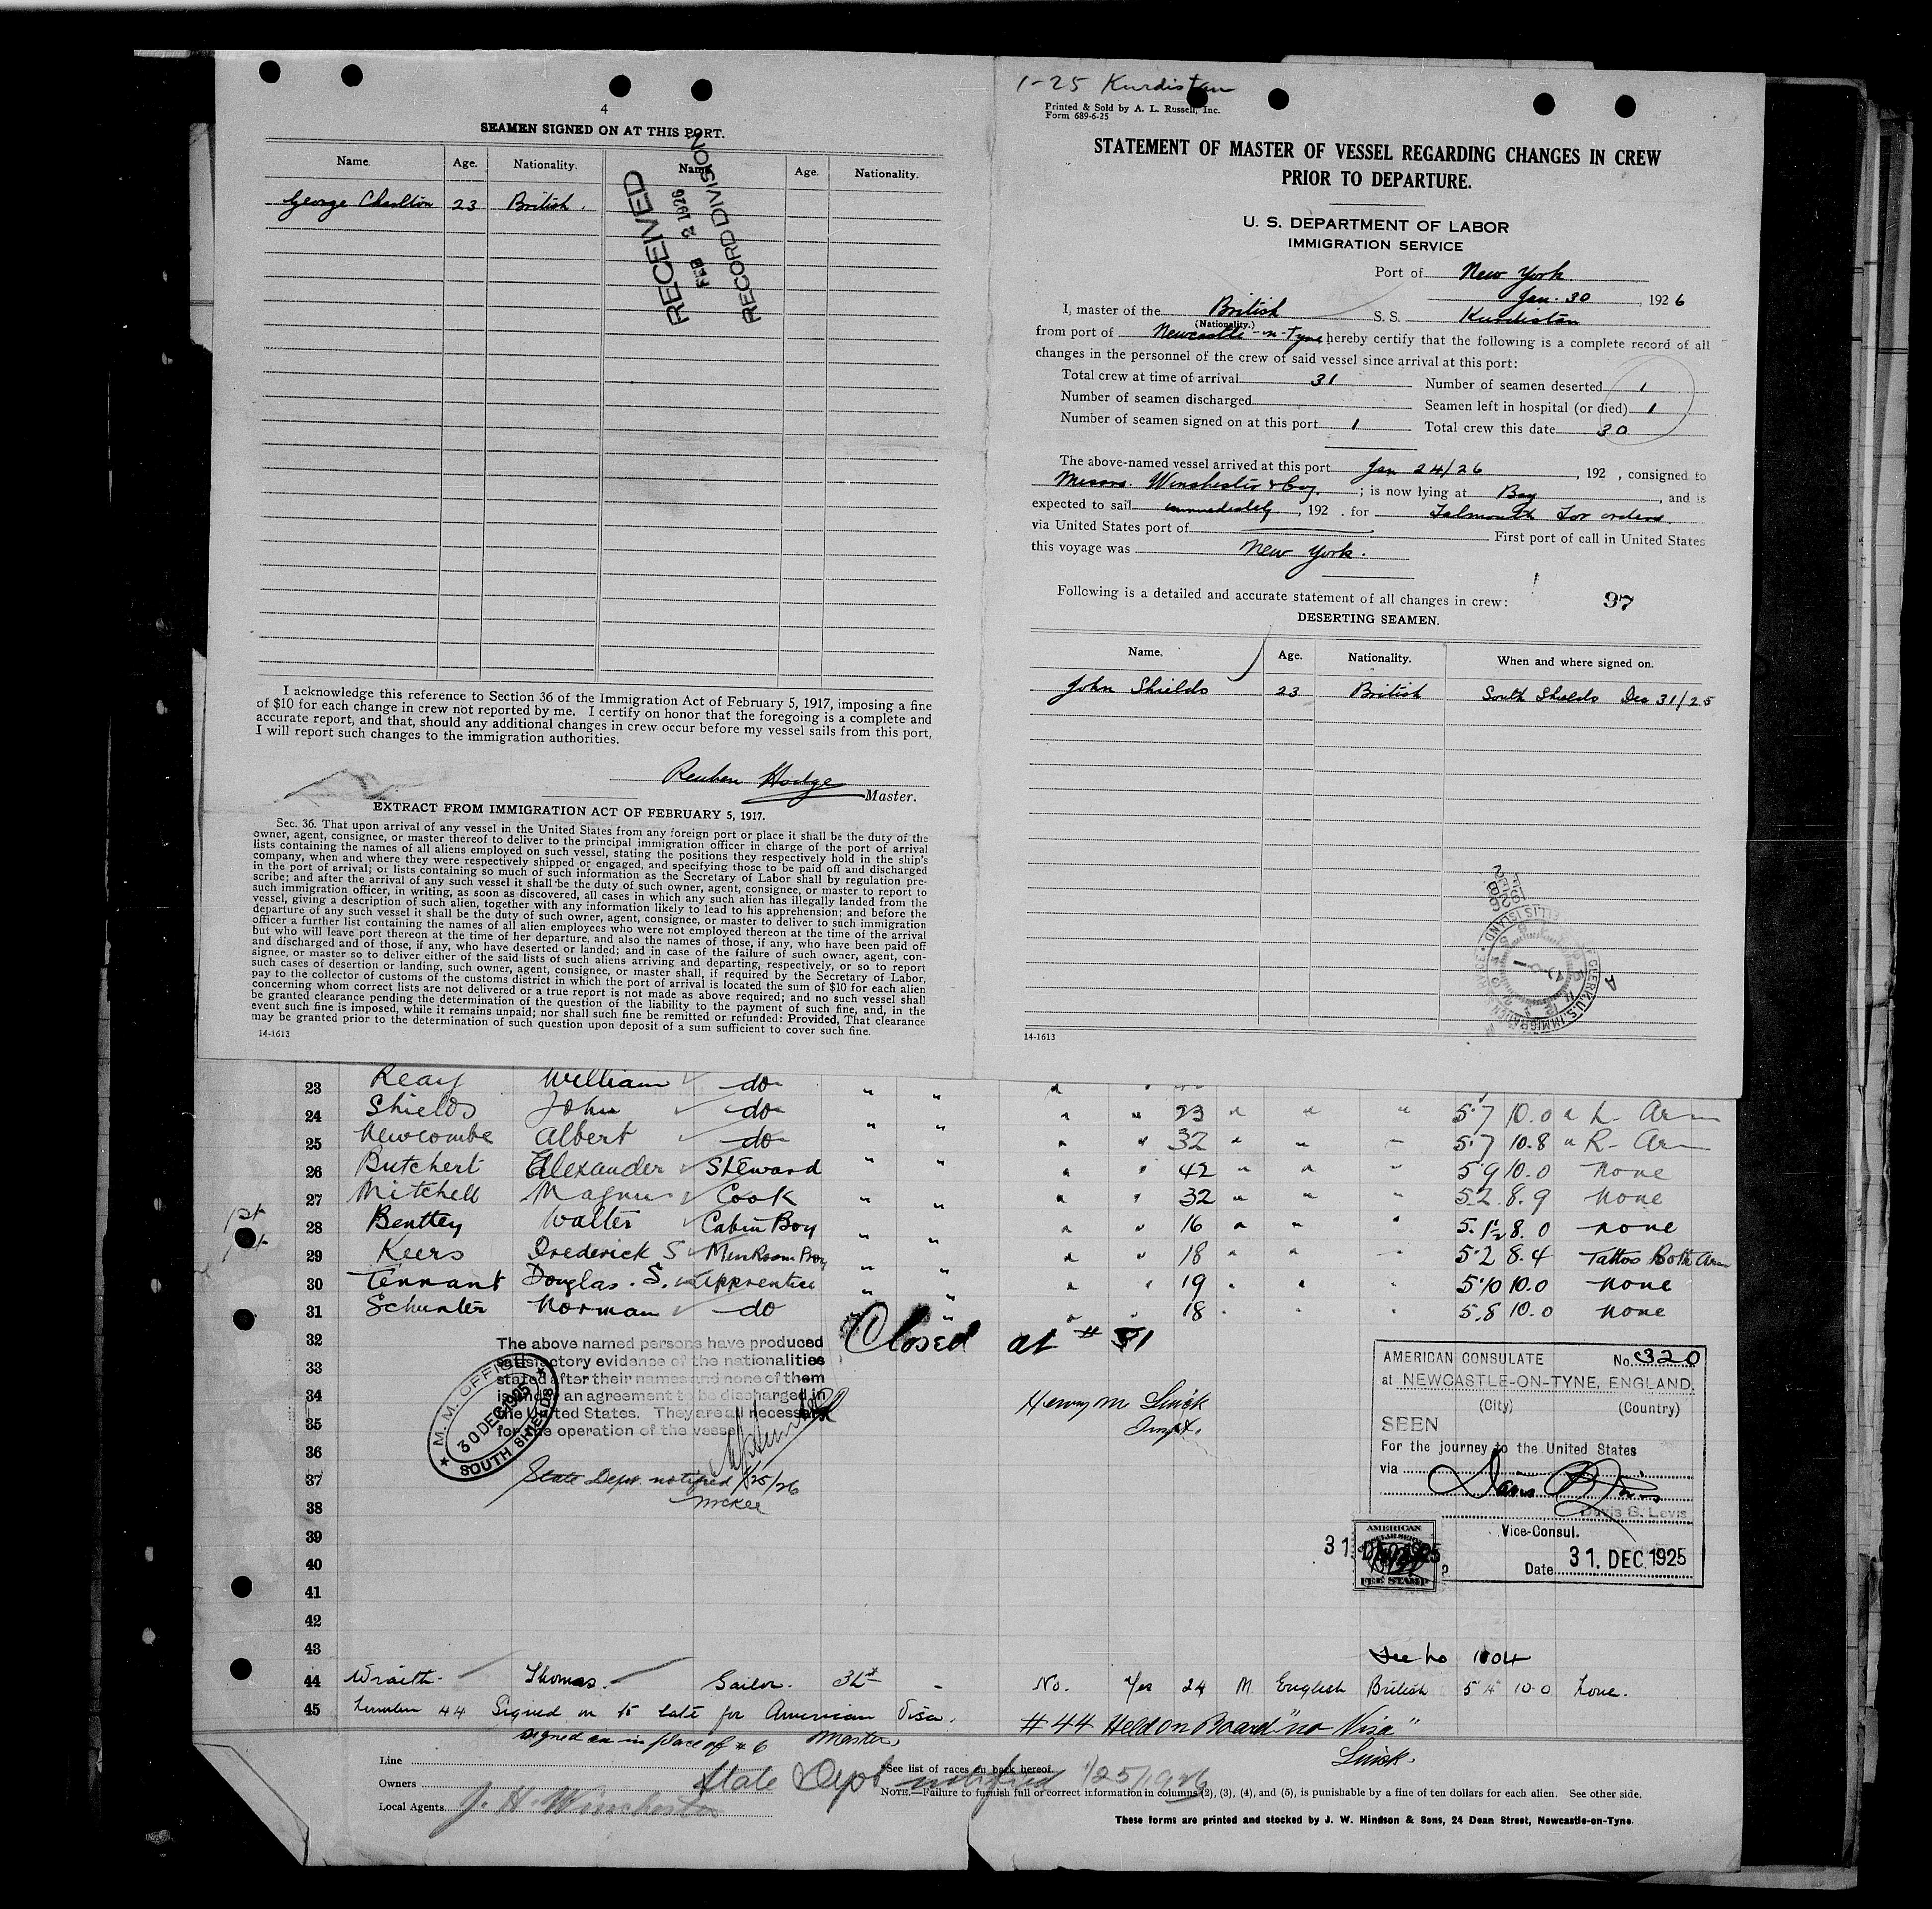 4
SEAMEN SIGNED ON AT THIS PORT.
Name. Age. Nationality. Name. Age. Nationality.
George Charlton 23 British.
RECEIVED
FEB 2 1926
RECORD DIVISION
I acknowledge this reference to Section 36 of the Immigration Act of February 5, 1917, imposing a fine
of $10 for each change in crew not reported by me. I certify on honor that the foregoing is a complete and
accurate report, and that, should any additional changes in crew occur before my vessel sails from this port,
I will report such changes to the immigration authorities.
Reuben Hodge
Master.
EXTRACT FROM IMMIGRATION ACT OF FEBRUARY 5, 1917.
Sec. 36. That upon arrival of any vessel in the United States from any foreign port or place it shall be the duty of the
owner, agent, consignee, or master thereof to deliver to the principal immigration officer in charge of the port of arrival
lists containing the names of all aliens employed on such vessel, stating the positions they respectively hold in the ship's
company, when and where they were respectively shipped or engaged, and specifying those to be paid off and discharged
in the port of arrival; or lists containing so much of such information as the Secretary of Labor shall by regulation pre-
scribe; and after the arrival of any such vessel it shall be the duty of such owner, agent, consignee, or master to report to
such immigration officer, in writing, as soon as discovered, all cases in which any such alien has illegally landed from the
vessel, giving a description of such alien, together with any information likely to lead to his apprehension; and before the
departure of any such vessel it shall be the duty of such owner, agent, consignee, or master to deliver to such immigration
officer a further list containing the names of all alien employees who were not employed thereon at the time of the arrival
but who will leave port thereon at the time of her departure, and also the names of those, if any, who have been paid off
and discharged and of those, if any, who have deserted or landed; and in case of the failure of such owner, agent, con-
signee, or master so to deliver either of the said lists of such aliens arriving and departing, respectively, or so to report
such cases of desertion or landing, such owner, agent, consignee, or master shall, if required by the Secretary of Labor,
pay to the collector of customs of the customs district in which the port of arrival is located the sum of $10 for each alien
concerning whom correct lists are not delivered or a true report is not made as above required; and no such vessel shall
be granted clearance pending the determination of the question of the liability to the payment of such fine, and, in the
event such fine is imposed, while it remains unpaid; nor shall such fine be remitted or refunded: Provided, That clearance
may be granted prior to the determination of such question upon deposit of a sum sufficient to cover such fine.
14-1613
1-25 Kurdistan
Printed & Sold by A. L. Russell, Inc.
Form 689-6-25
STATEMENT OF MASTER OF VESSEL REGARDING CHANGES IN CREW
PRIOR TO DEPARTURE.
U. S. DEPARTMENT OF LABOR
IMMIGRATION SERVICE
Port of New York
Jan. 30, 1926
I, master of the British S. S. Kurdistan
(Nationality.)
from port of Newcastle-on-Tyne hereby certify that the following is a complete record of all
changes in the personnel of the crew of said vessel since arrival at this port:
Total crew at time of arrival 31 Number of seamen deserted 1
Number of seamen discharged Seamen left in hospital (or died) 1
Number of seamen signed on at this port 1 Total crew this date 30
The above-named vessel arrived at this port Jan 24/26, 192 , consigned to
Messrs. Winchester & Coy.; is now lying at Bay, and is
expected to sail immediately, 192 . for Falmouth for orders.
via United States port of First port of call in United States
this voyage was New York.
Following is a detailed and accurate statement of all changes in crew: 97
DESERTING SEAMEN.
Name. Age. Nationality. When and where signed on.
John Shields 23 British South Shields Dec 31/25
ELLIS ISLAND
14-1613
23 Reay William do " "
24 Shields John do " " " " 23 " " " 5.7 10.0 " L. Arm
25 Newcombe Albert do " " " " 32 " " " 5.7 10.8 " R. Arm
26 Butchert Alexander Steward " " " " 42 " " " 5.9 10.0 none
27 Mitchell Magnus Cook " " " " 32 " " " 5.2 8.9 none
28 Benttey Walter Cabin Boy " " " " 16 " " " 5.1½ 8.0 none
29 Keers Frederick S Mess Room Boy " " " " 18 " " " 5.2 8.4 Tattos Both Arm
30 Tennant Douglas. S. Apprentice " " " " 19 " " " 5.10 10.0 none
31 Schunter Norman do " " " " 18 " " " 5.8 10.0 none
32 Closed at # 31
33
34
35
36
37
38
39
40
41
42
43
The above named persons have produced
satisfactory evidence of the nationalities
stated after their names and none of them
is under an agreement to be discharged in
the United States. They are all necessary
for the operation of the vessel
M. M. OFFICE
30 DEC 1925
SOUTH SHIELDS
State Dept. notified 1/25/26
McKee
Henry M Luick
Inspt.
AMERICAN CONSULATE No. 320
at NEWCASTLE-ON-TYNE, ENGLAND.
(City) (Country)
SEEN
For the journey to the United States
via
Davis B. Levis
Vice-Consul.
Date 31. DEC. 1925
AMERICAN
FEE STAMP
See No 1004
44 Wraith Thomas. Sailor. No. Yes 24 M English British 5 4 10.0 None.
45 Number 44 Signed on to late for American Visa.
signed on in place of # 6 Master,
#44 Held on Board "no Visa"
Luick.
Line
Owners
Local Agents J. H. Winchester
State Dept notified 1/25/1926
*See list of races on back hereof.
NOTE.—Failure to furnish full or correct information in columns (2), (3), (4), and (5), is punishable by a fine of ten dollars for each alien. See other side.
These forms are printed and stocked by J. W. Hindson & Sons, 24 Dean Street, Newcastle-on-Tyne.